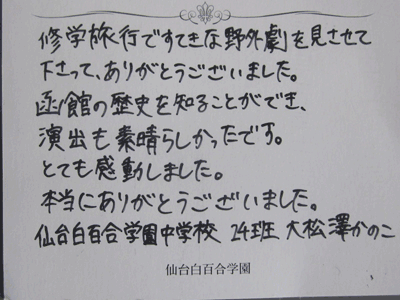 修学旅行ですてきな野外劇を見させて
下さって、ありがとうございました。
函館の歴史を知ることができ、
演出も素晴らしかったです。
とても感動しました。
本当にありがとうございました。
仙台白百合学園中学校 24班 大松澤かのこ
仙台白百合学園